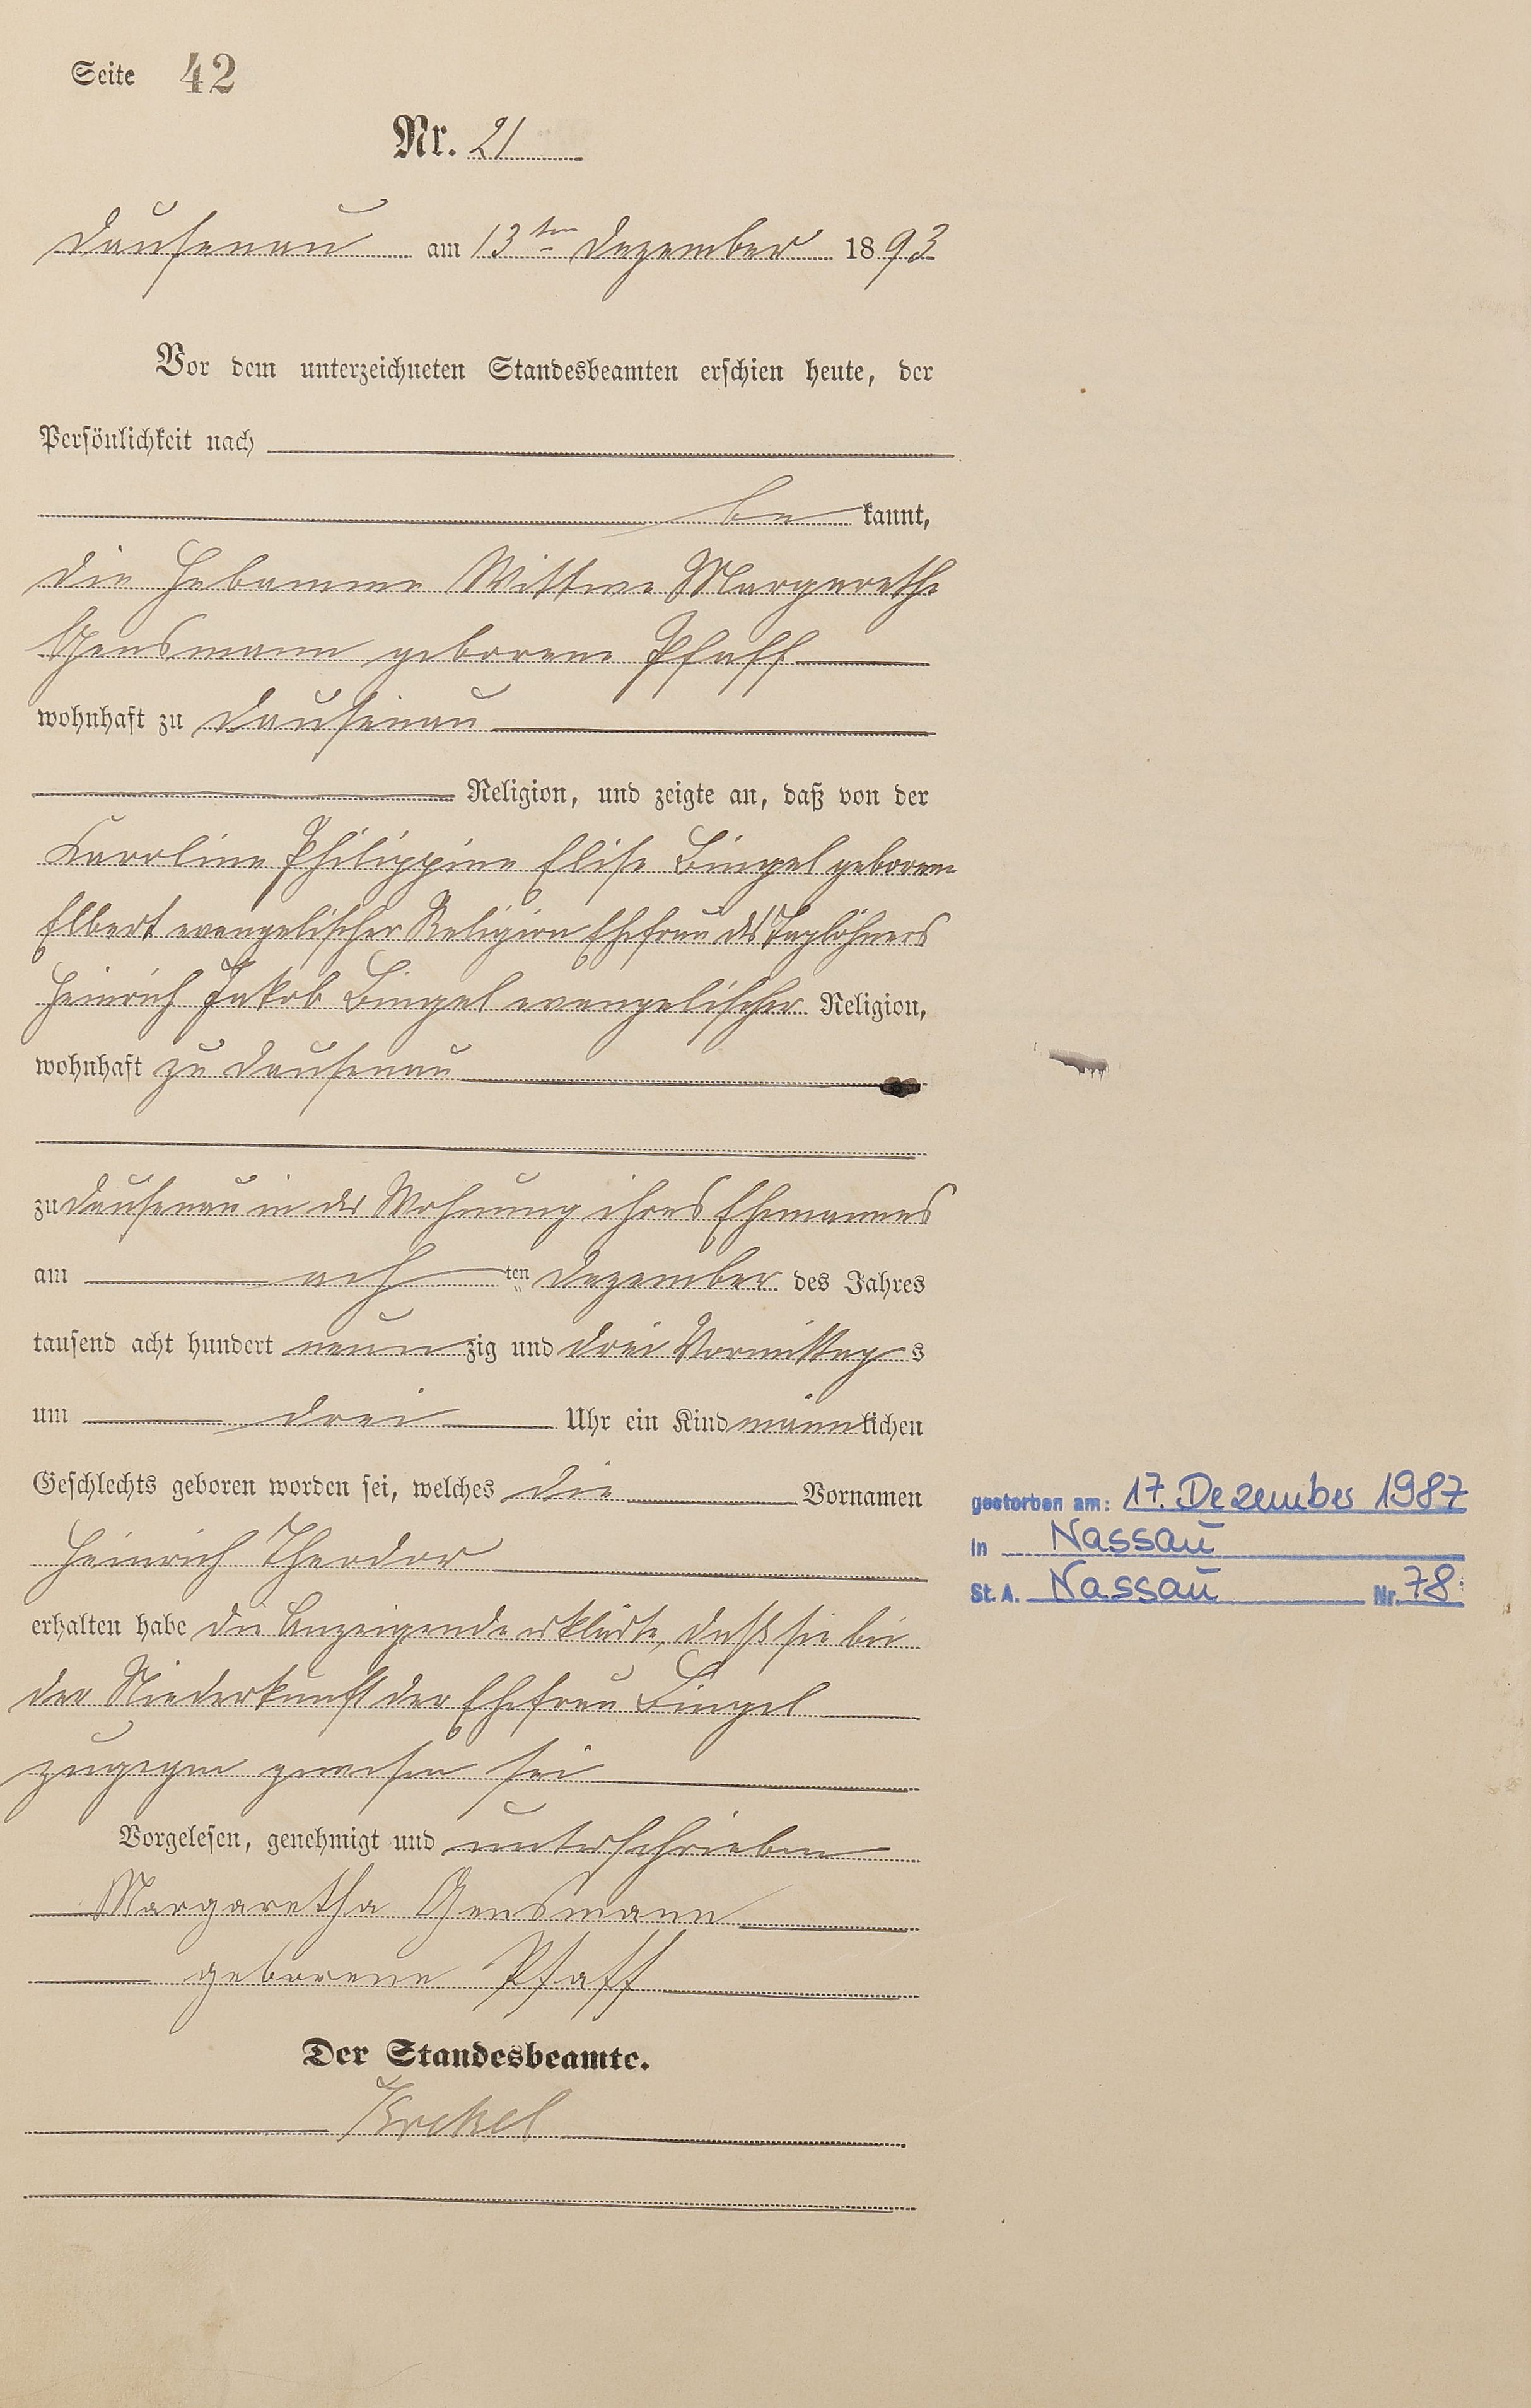 Seite 42
Nr. 21
Dausenau am 13ten Dezember 1893
Vor dem unterzeichneten Standesbeamten erschien heute, der
Persönlichkeit nach
be kannt,
die Hebamme Wittwe Margarethe
Gensmann geborene Pfaff
wohnhaft zu Dausenau
Religion, und zeigte an, daß von der
Karoline Philippine Elise Bingel geborene
Elbert evangelischer Religion Ehefrau des Taglöhners
Heinrich Jakob Bingel evangelischer Religion,
wohnhaft zu Dausenau
zu Dausenau in der Wohnung ihres Ehemannes
am ach ten Dezember des Jahres
tausend acht hundert neun zig und drei Vormittag s
um drei Uhr ein Kind männ lichen
Geschlechts geboren worden sei, welches die Vornamen
Heinrich Theodor
gestorben am: 17. Dezember 1987
in Nassau
St. A. Nassau Nr. 78
erhalten habe die Anzeigende erklärte, daß sie bei
der Niederkunft der Ehefrau Bingel
zugegen gewesen sei
Vorgelesen, genehmigt und unterschrieben
Margaretha Gensmann
geborene Pfaff
Der Standesbeamte.